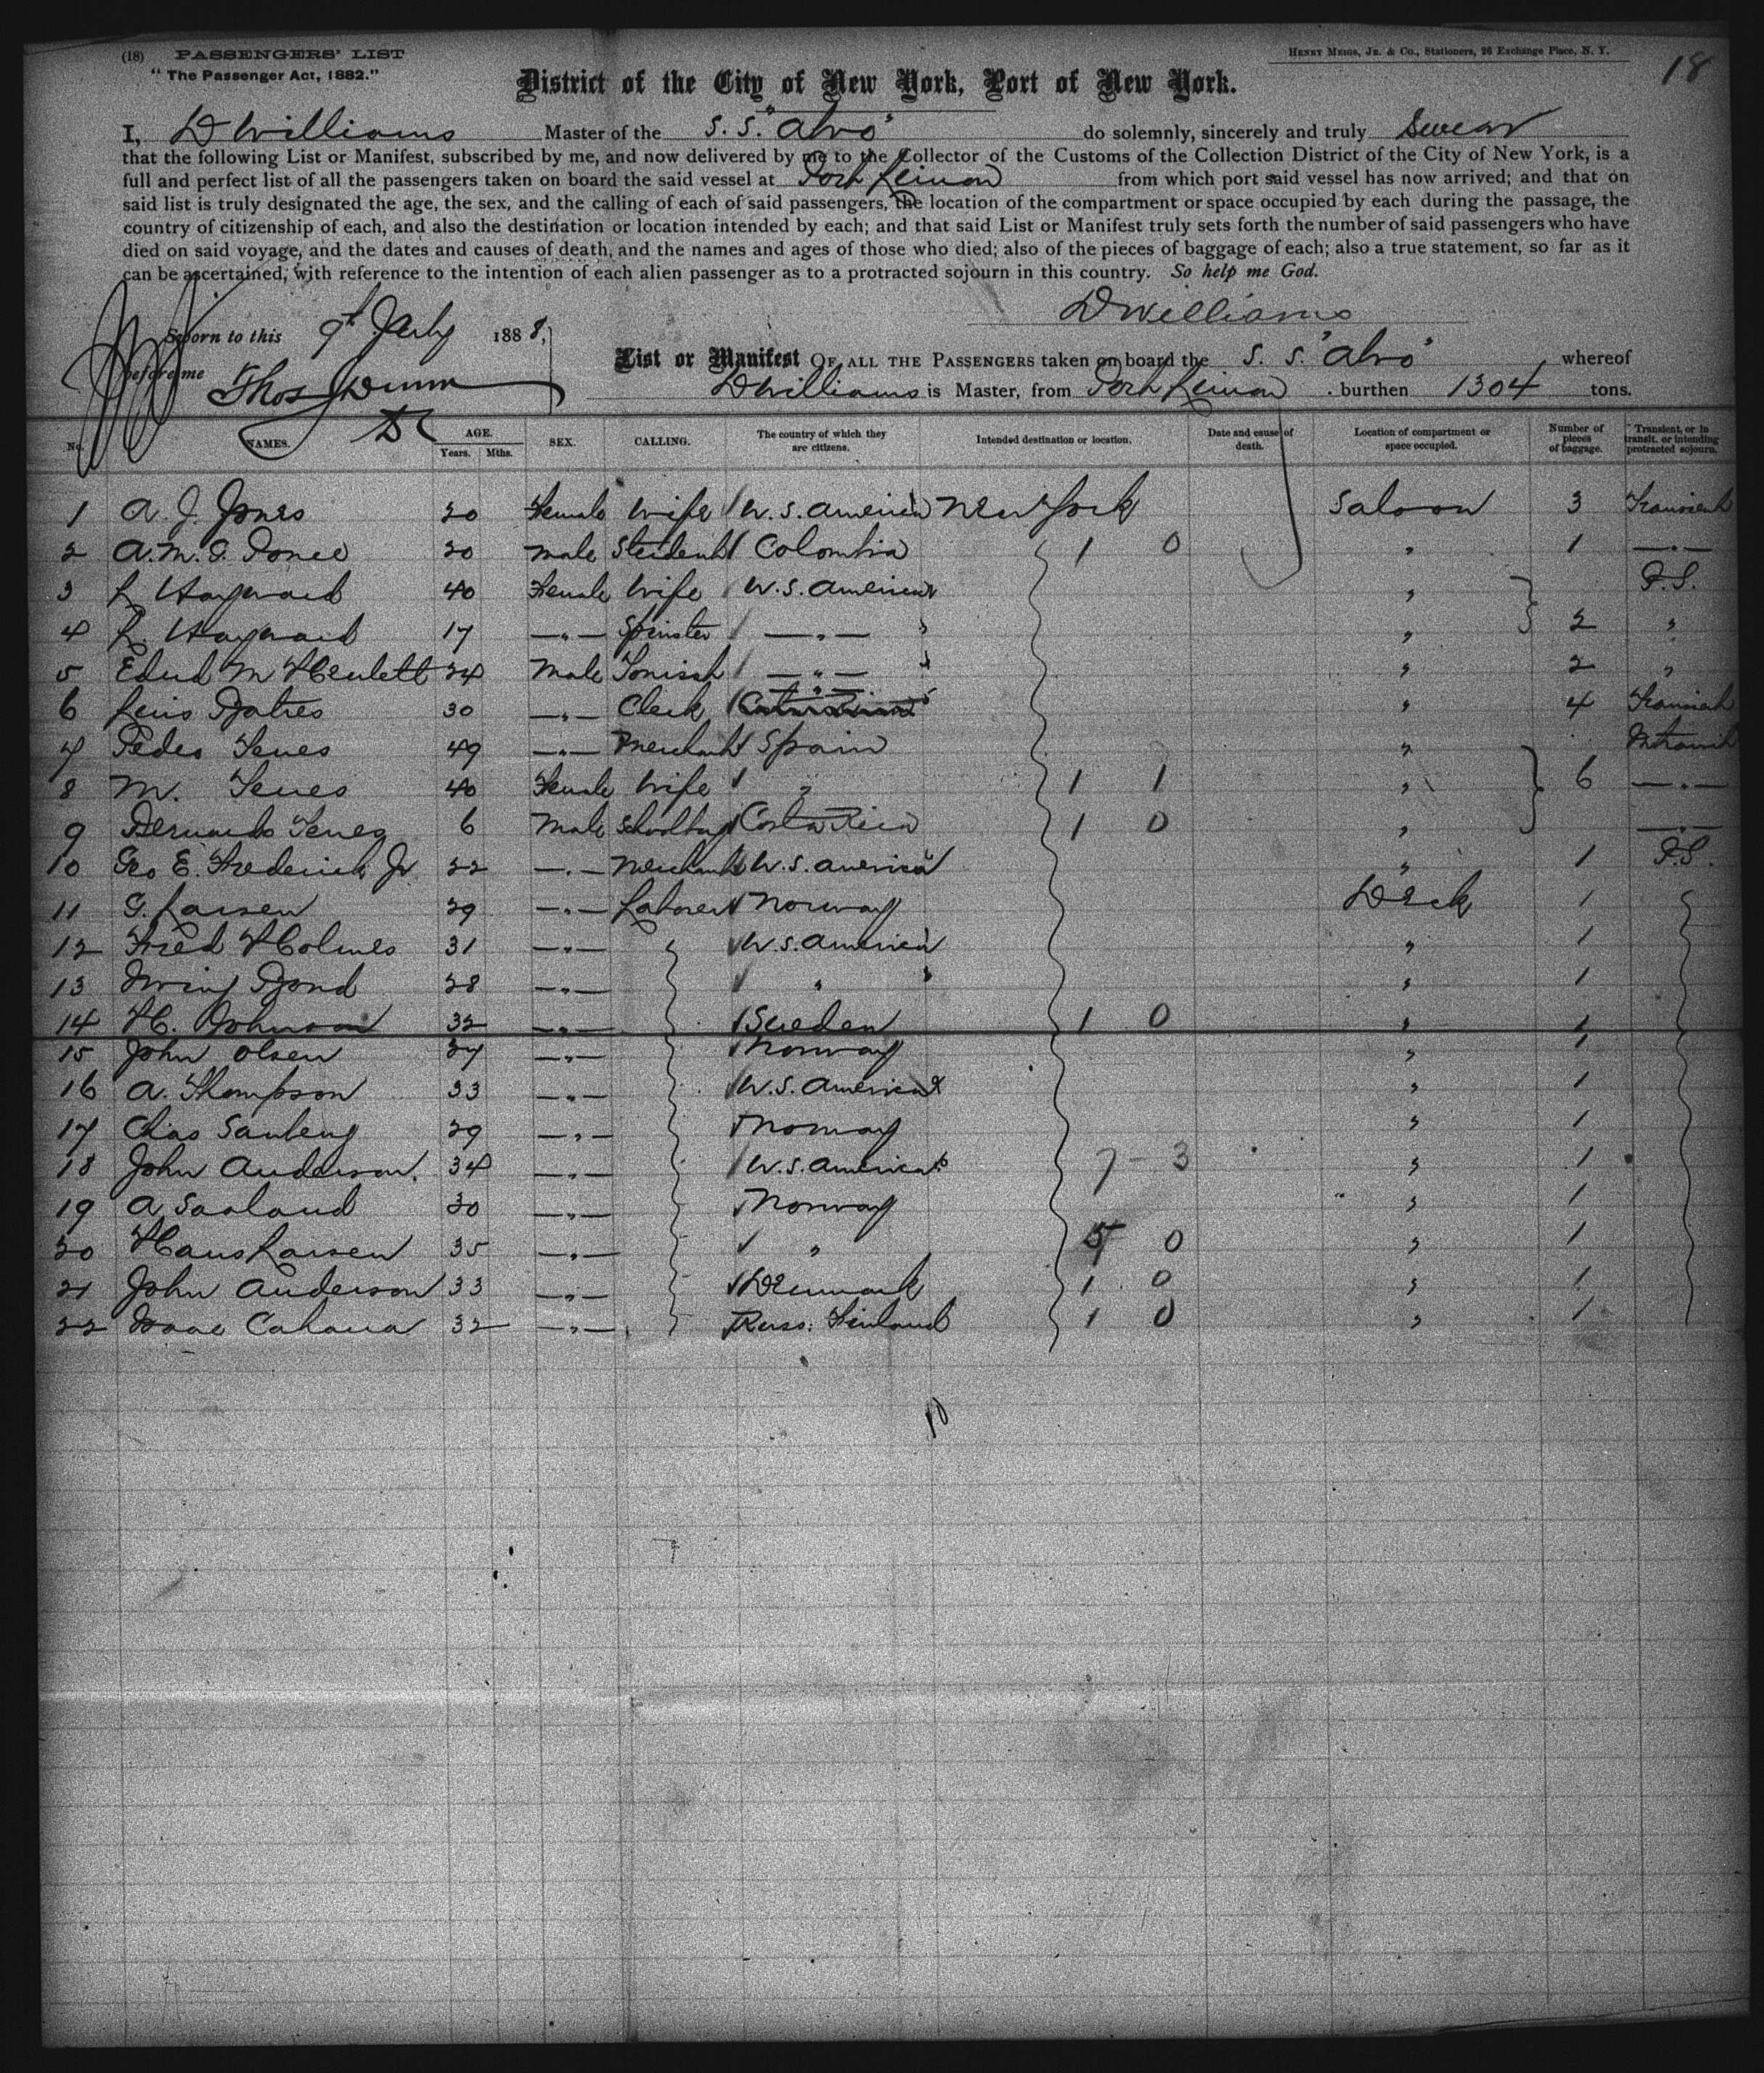 (18) PASSENGERS' LIST
HENRY MEIGS, JR. & CO., Stationers, 26 Exchange Place, N. Y.
18
"The Passenger Act, 1882."
District of the City of New York, Port of New York.
I, D Williams Master of the S. S. "Alvo" do solemnly, sincerely and truly Swear
that the following List or Manifest, subscribed by me, and now delivered by me to the Collector of the Customs of the Collection District of the City of New York, is a
full and perfect list of all the passengers taken on board the said vessel at Port Limon from which port said vessel has now arrived; and that on
said list is truly designated the age, the sex, and the calling of each of said passengers, the location of the compartment or space occupied by each during the passage, the
country of citizenship of each, and also the destination or location intended by each; and that said List or Manifest truly sets forth the number of said passengers who have
died on said voyage, and the dates and causes of death, and the names and ages of those who died; also of the pieces of baggage of each; also a true statement, so far as it
can be ascertained, with reference to the intention of each alien passenger as to a protracted sojourn in this country. So help me God.
D Williams
Sworn to this 9th 1888,
before me Thos Dunn
List or Manifest OF ALL THE PASSENGERS taken on board the S. S. "Alvo" whereof
D Williams is Master, from Port Limon burthen 1304 tons.
No. NAMES. AGE. Years. Mths. SEX. CALLING. The country of which they are citizens. Intended destination or location. Date and cause of death. Location of compartment or space occupied. Number of pieces of baggage. Transient, or in transit, or intending protracted sojourn.
1 A. J. Jones 20 Female Wife U.S. America New York Saloon 3 Transient
2 A. M. 20 Male Student Colombia 1 0 " 1 —"—
3 L Hayward 40 Female Wife U.S. America " " P.S.
4 L. Hayward 17 —"— Spinster —"— " " 2 "
5 Edwd M Hewlett 24 Male Tourist —"— " " 2 "
6 Luis Batres 30 —"— Clerk —"— " " 4 Transient
7 Pedro Teves 49 —"— Merchant Spain "
8 M. Teves 40 Female Wife " 1 1 " 6 —"—
9 Bernardo Teves 6 Male Schoolboy Costa Rica 1 0 " —"—
10 Geo E. Frederick Jr 22 —"— Merchant U.S. America " 1 P.S.
11 G. Larsen 29 —"— Laborer Norway Deck 1
12 Fred Holmes 31 —"— U.S. America " 1
13 Irving Bond 28 —"— " " " 1
14 H. Johnson 32 —"— Sweden 1 0 " 1
15 John Olsen 27 —"— Norway " 1
16 A. Thompson 33 —"— U.S. America " 1
17 Chas 29 —"— Norway " 1
18 John Anderson. 34 —"— U.S. America 7 - 3 " 1
19 A Saaland 30 —"— Norway " 1
20 Hans Larsen 35 —"— " 5 0 " 1
21 John Anderson 33 —"— Denmark 1 0 " 1
22 Isaac 32 —"— Russ. Finland 1 0 " 1